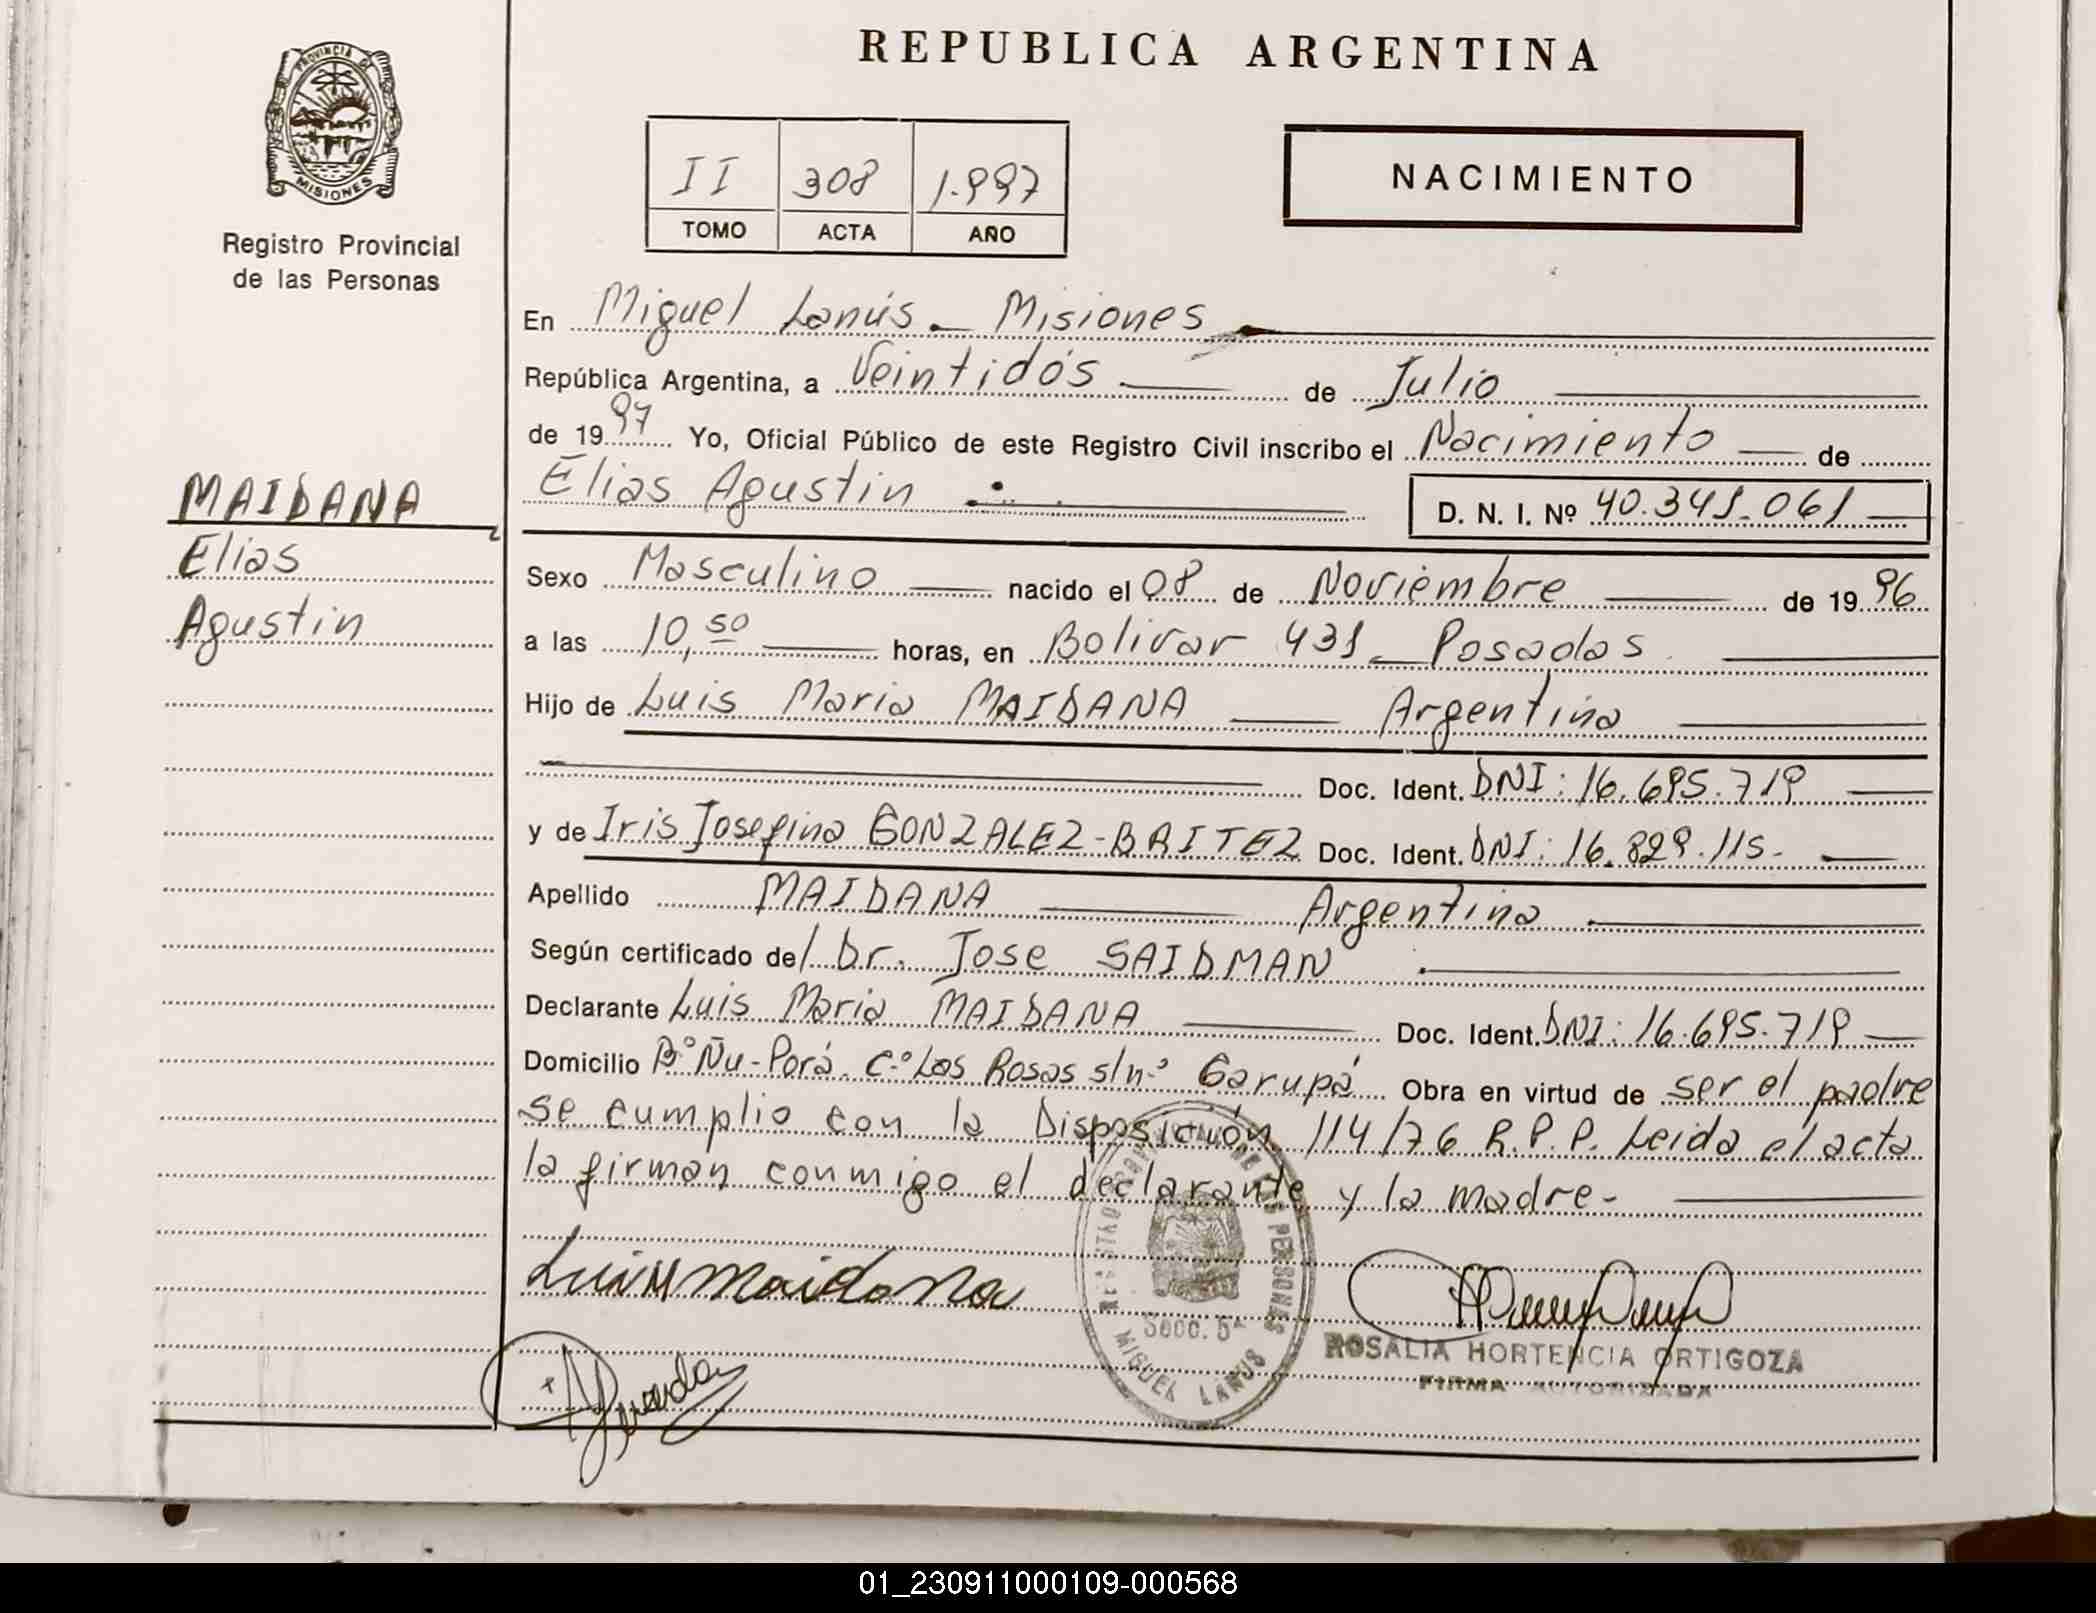 REPUBLICA ARGENTINA
PROVINCIA DE MISIONES
Registro Provincial
de las Personas
II 308 1.997
TOMO ACTA AÑO
NACIMIENTO
En Miguel Lanús - Misiones
República Argentina, a Veintidós de Julio
de 1997 Yo, Oficial Público de este Registro Civil inscribo el Nacimiento de
Elias Agustin D. N. I. Nº 40.341.061
MAIDANA
Elias
Agustin
Sexo Masculino nacido el 08 de Noviembre de 1996
a las 10,50 horas, en Bolivar 431 - Posadas
Hijo de Luis Maria MAIDANA Argentina
Doc. Ident. DNI: 16.695.719
y de Iris Josefina GONZALEZ-BRITEZ Doc. Ident. DNI: 16.829.115.-
Apellido MAIDANA Argentina
Según certificado del Dr. Jose SAIDMAN
Declarante Luis Maria MAIDANA Doc. Ident. DNI: 16.695.719
Domicilio Bº Ñu-Porá. C.º Las Rosas s/n.º Garupá Obra en virtud de ser el padre
se cumplio con la Disposición 114/76 R.P.P. Leida el acta
la firman conmigo el declarante y la madre.-
Luis M Maidana
Secc. 5ª
MIGUEL LANUS
ROSALIA HORTENCIA ORTIGOZA
FIRMA AUTORIZADA
01_230911000109-000568